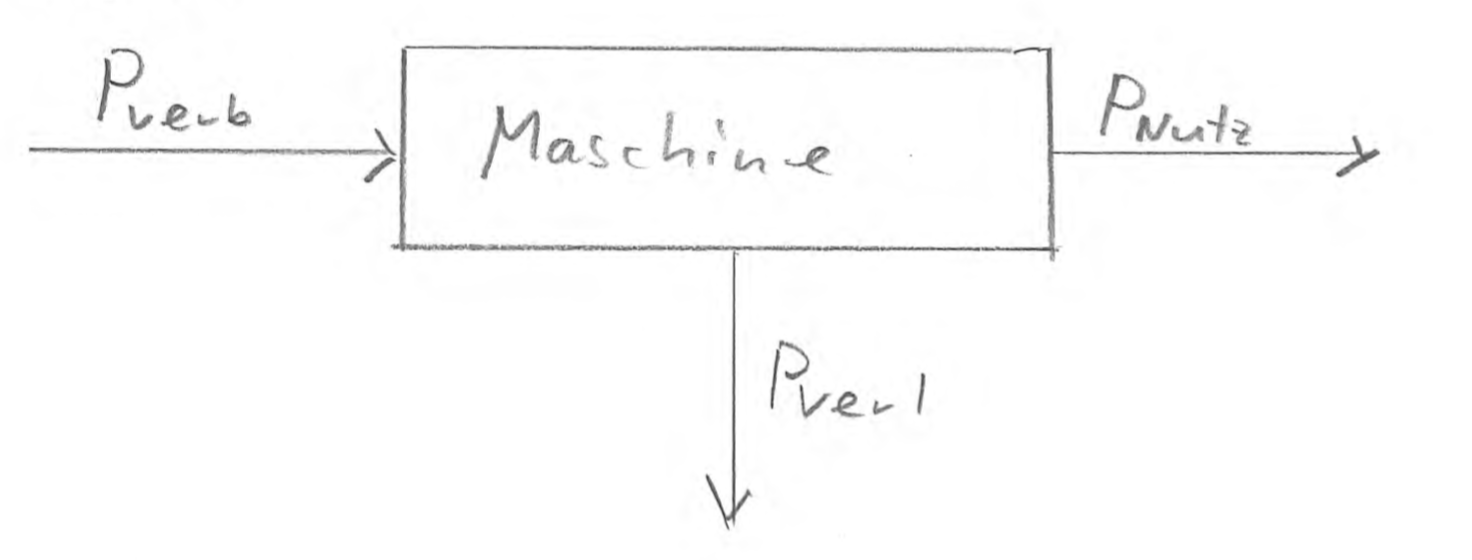 Pverb
Maschine
PNutz
Pverl